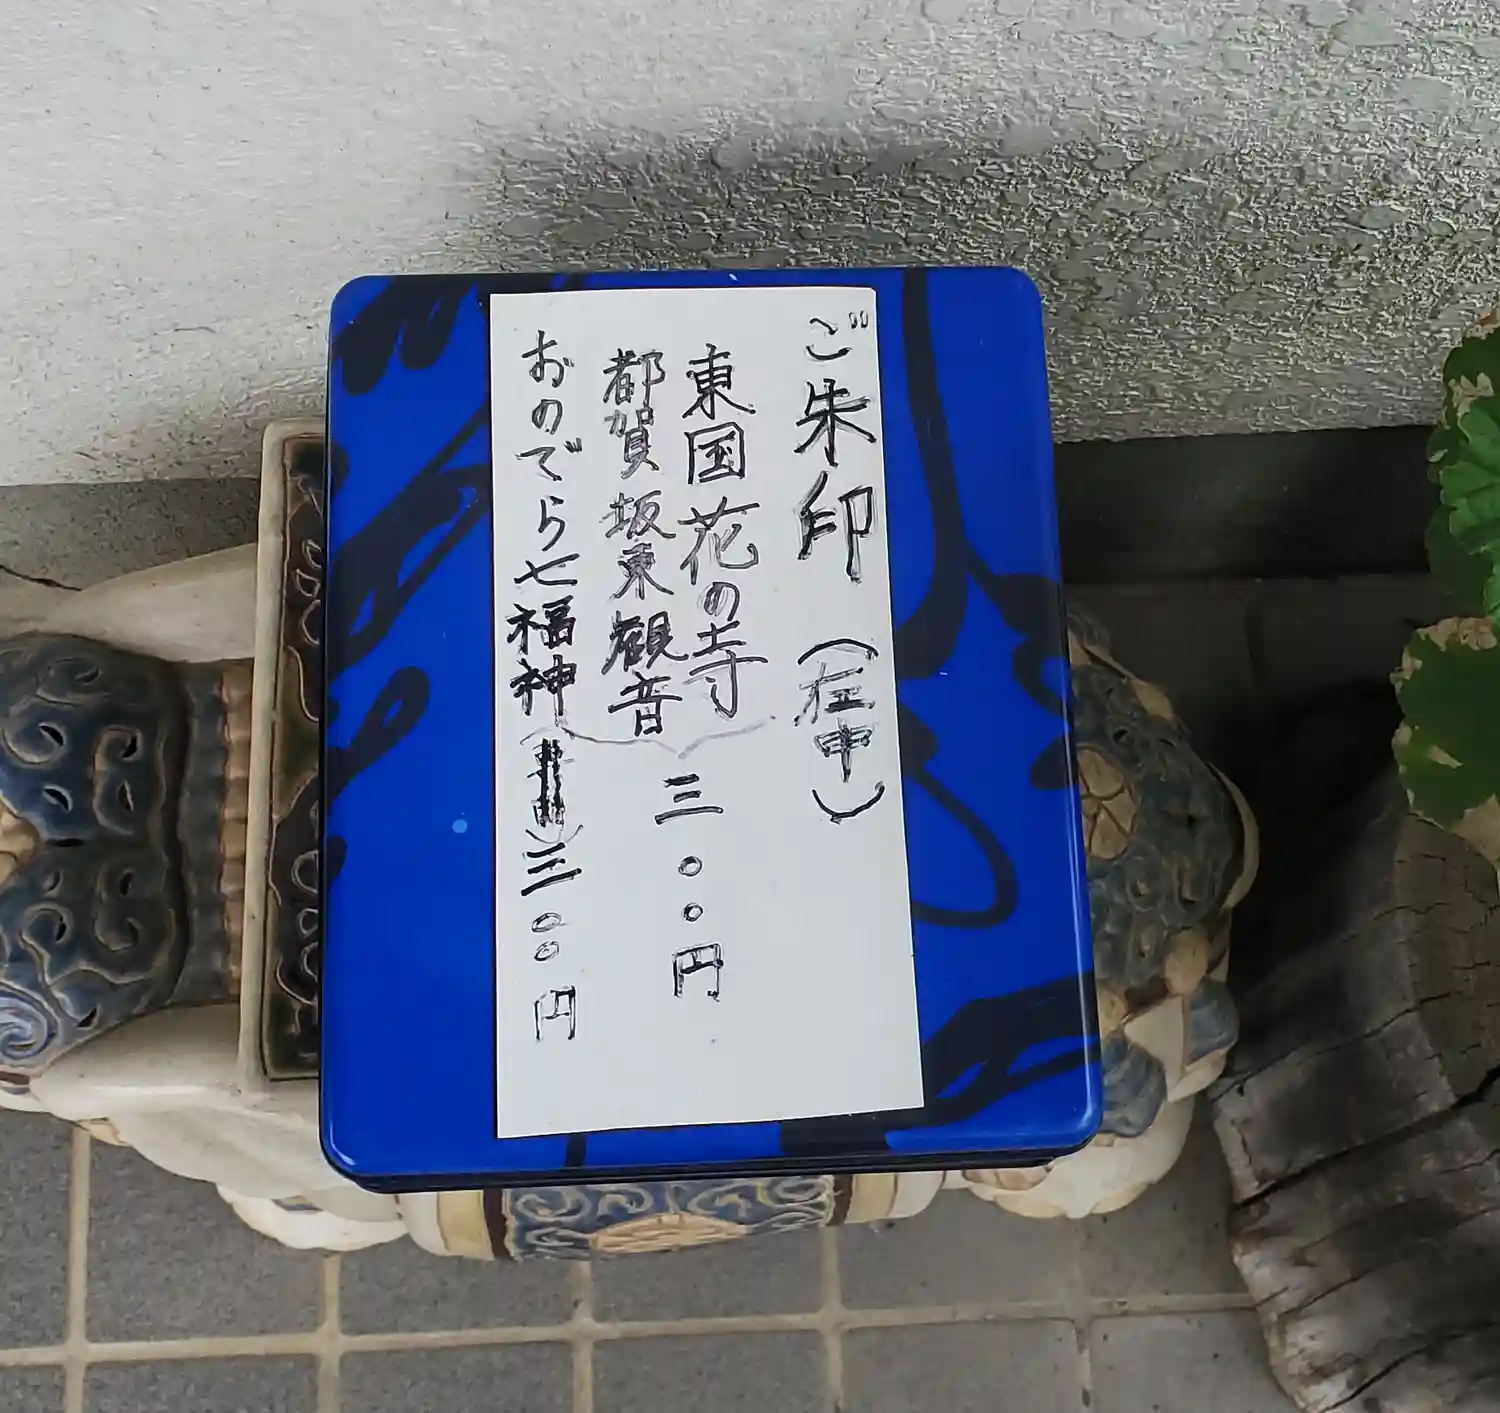 ご朱印（在中）
東国花の寺
都賀坂東観音
三〇〇円
おのでら七福神（）三〇〇円